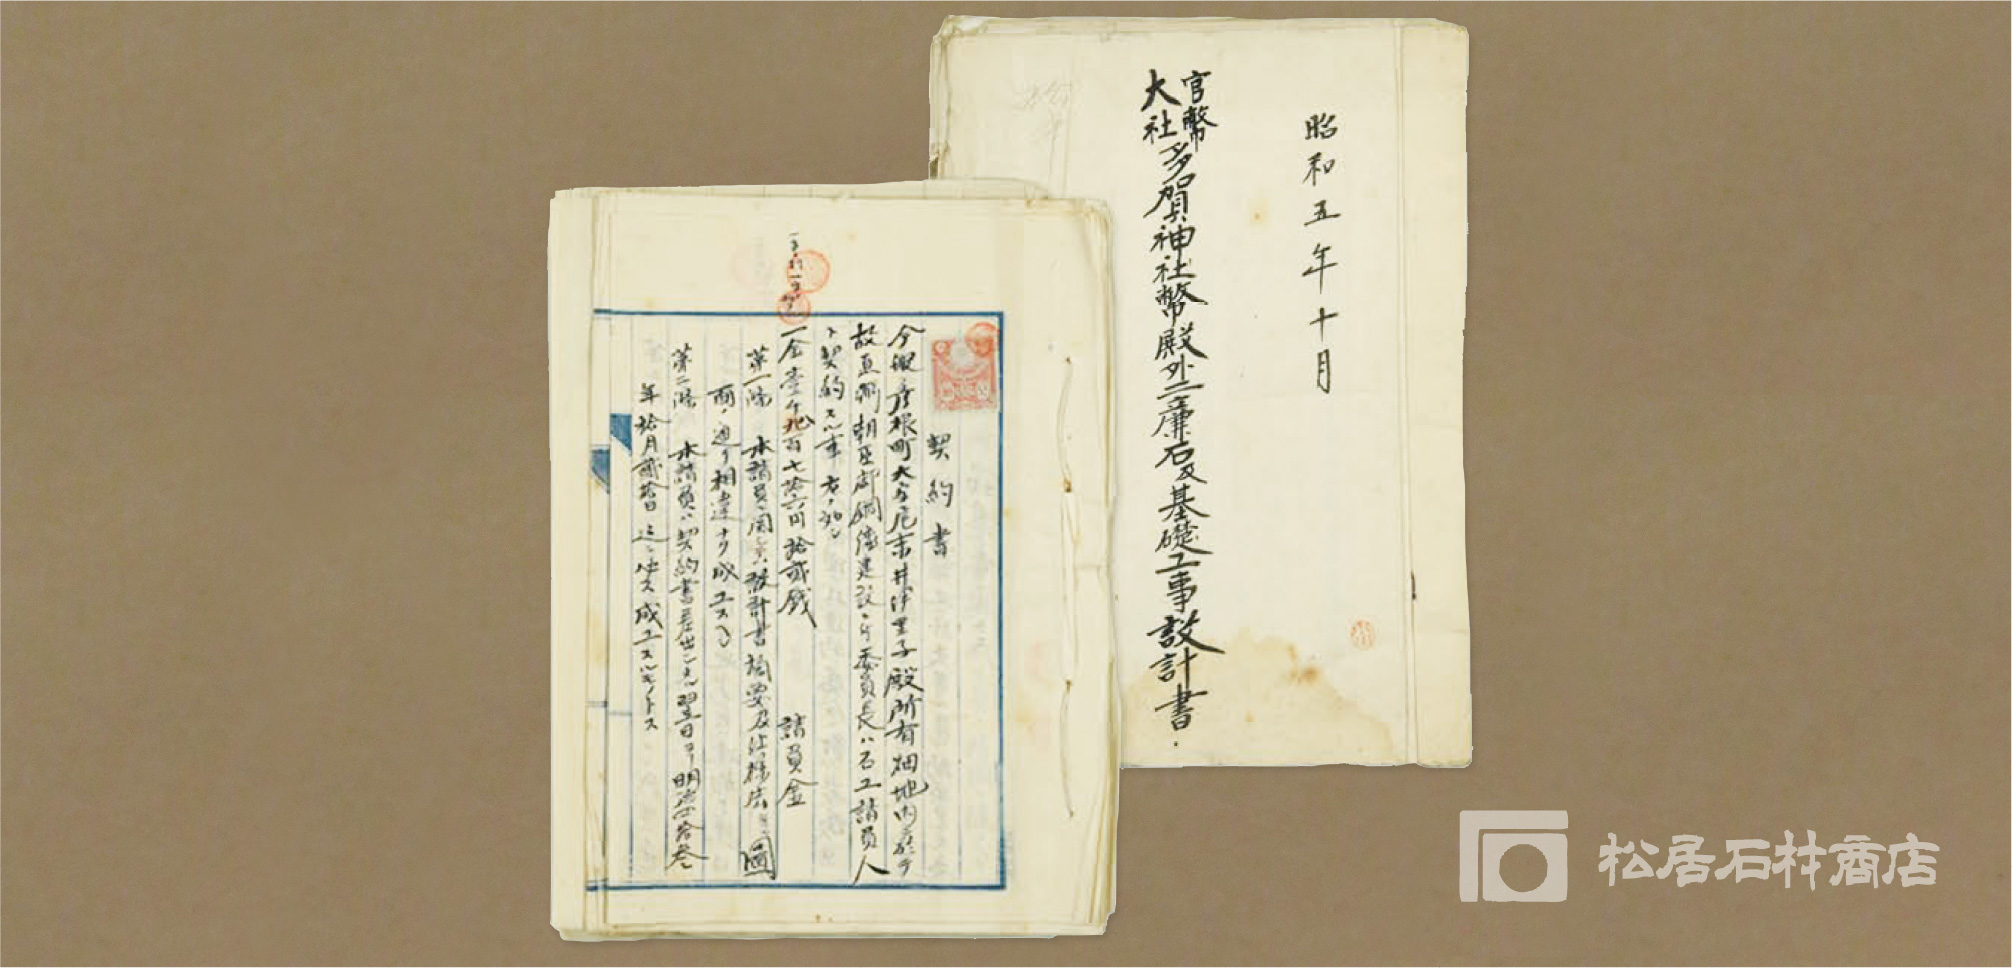 昭和五年十月
官幣
大社
多賀神社幣殿外二廉石及基礎工事設計書
契約書
今般彦根町大字尾末井伊里子殿所有畑地内ニ於テ
故直弼朝臣銅像建設ニ付委員長ハ石工請負人
ト契約スル事左ノ如シ
一金壹千九百七拾六円拾貳銭 請負金
第一條 本請負ニ関スル設計書摘要及仕様法ハ圖
面ノ通リ相違ナク成工スル
第二條 本請負ハ契約書差出シタル翌日ヨリ明治四拾叁
年拾月貳拾日迄ニ必ス成工スルモノトス
松居石材商店